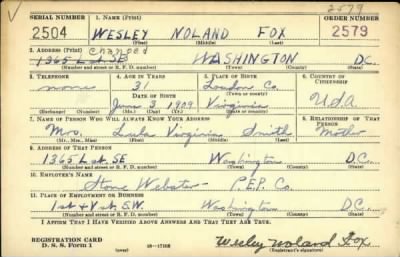 2579
SERIAL NUMBER 1. NAME (Print) ORDER NUMBER
2504 WESLEY NOLAND FOX 2579
(First) (Middle) (Last)
2. ADDRESS (Print) Changed
1365 L st. SE WASHINGTON D.C.
(Number and street or R. F. D. number) (Town) (County) (State)
3. TELEPHONE 4. AGE IN YEARS 5. PLACE OF BIRTH 6. COUNTRY OF CITIZENSHIP
none 31 Loudon Co.
DATE OF BIRTH (Town or county)
June 3 1909 Virginia USA
(Exchange) (Number) (Mo.) (Day) (Yr.) (State or country)
7. NAME OF PERSON WHO WILL ALWAYS KNOW YOUR ADDRESS 8. RELATIONSHIP OF THAT PERSON
Mrs. Lula Virginia Smith Mother
(Mr., Mrs., Miss) (First) (Middle) (Last)
9. ADDRESS OF THAT PERSON
1365 L st. SE Washington D.C.
(Number and street or R. F. D. number) (Town) (County) (State)
10. EMPLOYER'S NAME
Stone Webster P.E.P. Co.
11. PLACE OF EMPLOYMENT OR BUSINESS
1st + V st. S.W. Washington D.C.
(Number and street or R. F. D. number) (Town) (County) (State)
I AFFIRM THAT I HAVE VERIFIED ABOVE ANSWERS AND THAT THEY ARE TRUE.
REGISTRATION CARD
D. S. S. Form 1 (over) Wesley Noland Fox
(Registrant's signature)